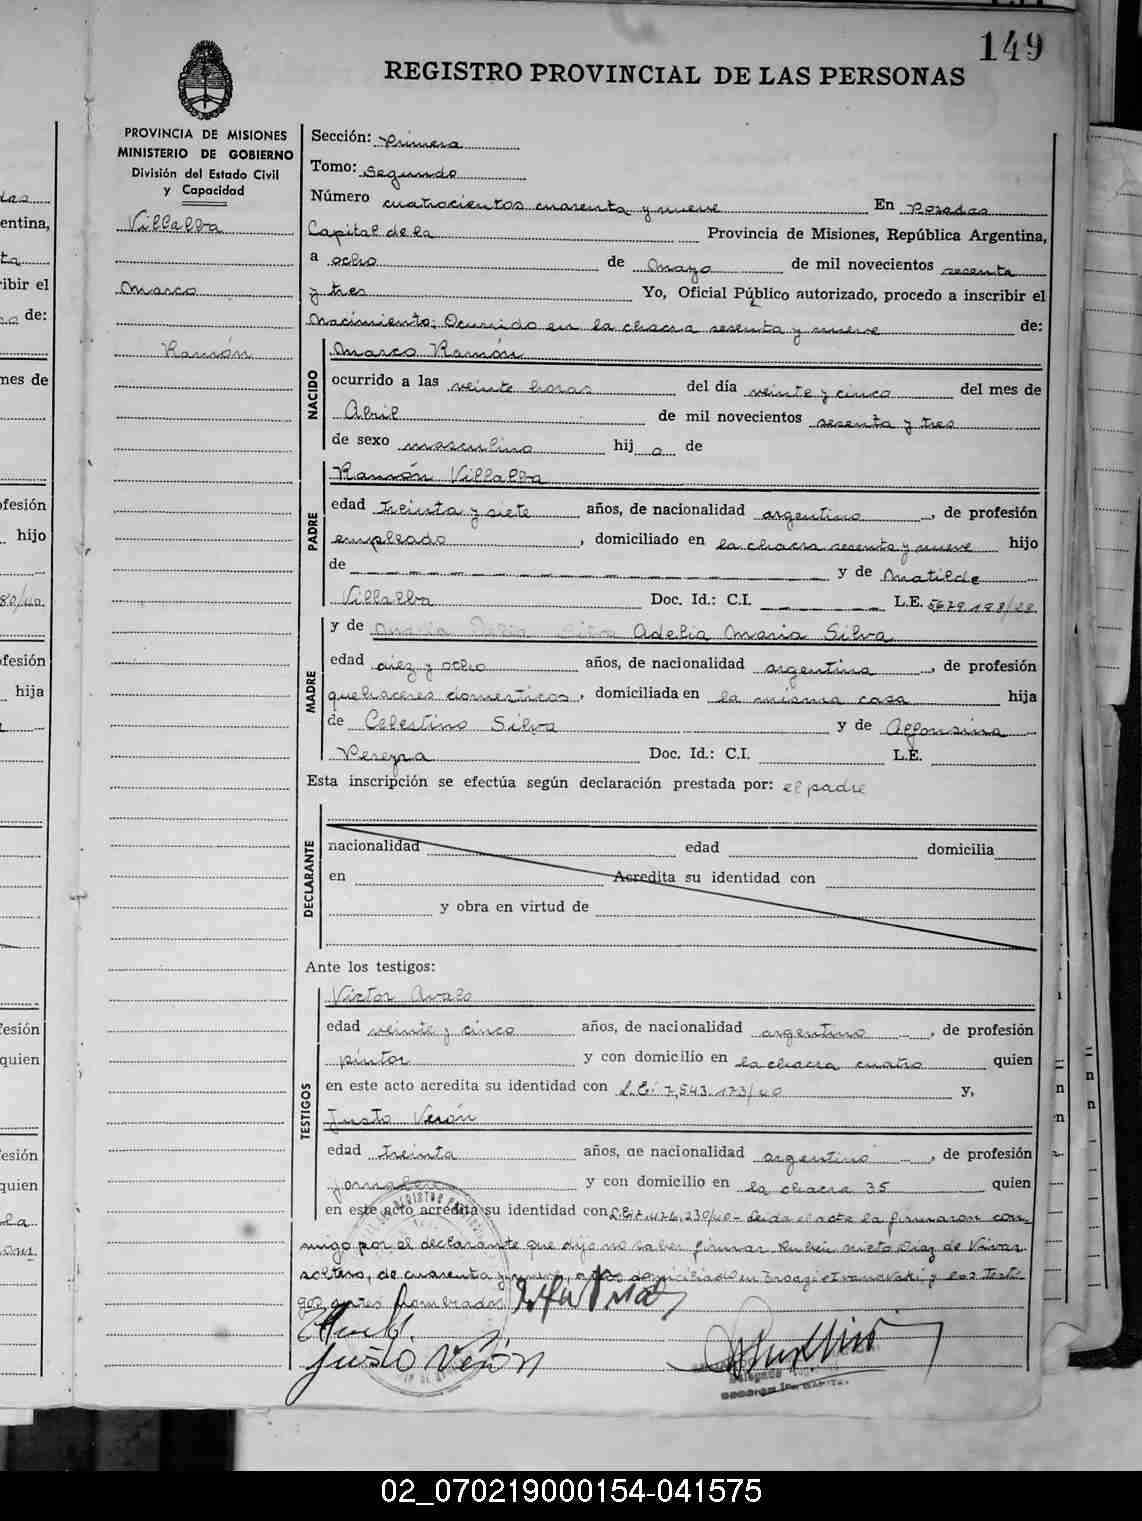 149
REGISTRO PROVINCIAL DE LAS PERSONAS
PROVINCIA DE MISIONES
MINISTERIO DE GOBIERNO
División del Estado Civil
y Capacidad
Villalba
Marco
Ramón
Sección: Primera
Tomo: Segundo
Número cuatrocientos cuarenta y nueve En Posadas
Capital de la Provincia de Misiones, República Argentina,
a ocho de Mayo de mil novecientos sesenta
y tres Yo, Oficial Público autorizado, procedo a inscribir el
Nacimiento: Ocurrido en la chacra sesenta y nueve de:
NACIDO
Marco Ramón
ocurrido a las veinte horas del día veinte y cinco del mes de
Abril de mil novecientos sesenta y tres
de sexo masculino hij o de
PADRE
Ramón Villalba
edad treinta y siete años, de nacionalidad argentino, de profesión
empleado, domiciliado en la chacra sesenta y nueve hijo
de y de Matilde
Villalba Doc. Id.: C.I. L.E. 5679.188/28
MADRE
y de Adelia Maria Silva
edad diez y ocho años, de nacionalidad argentina, de profesión
quehaceres domesticos, domiciliada en la misma casa hija
de Celestino Silva y de Alfonsina
Pereyra Doc. Id.: C.I. L.E.
Esta inscripción se efectúa según declaración prestada por: el padre
DECLARANTE
nacionalidad edad domicilia
en Acredita su identidad con
y obra en virtud de
Ante los testigos:
TESTIGOS
Victor Avalo
edad veinte y cinco años, de nacionalidad argentino, de profesión
pintor y con domicilio en la chacra cuatro quien
en este acto acredita su identidad con L.E: 7,543.173/40 y,
Justo Verón
edad treinta años, de nacionalidad argentino, de profesión
jornalero y con domicilio en la chacra 35 quien
en este acto acredita su identidad con L.E: 7.476.230/40 - Leida el acta la firmaron con-
migo por el declarante que dijo no saber firmar Ruben Nieto Diaz de Vivar
soltero, de cuarenta y nueve, años domiciliado en y los testi
gos antes nombrados
Justo Verón
02_070219000154-041575